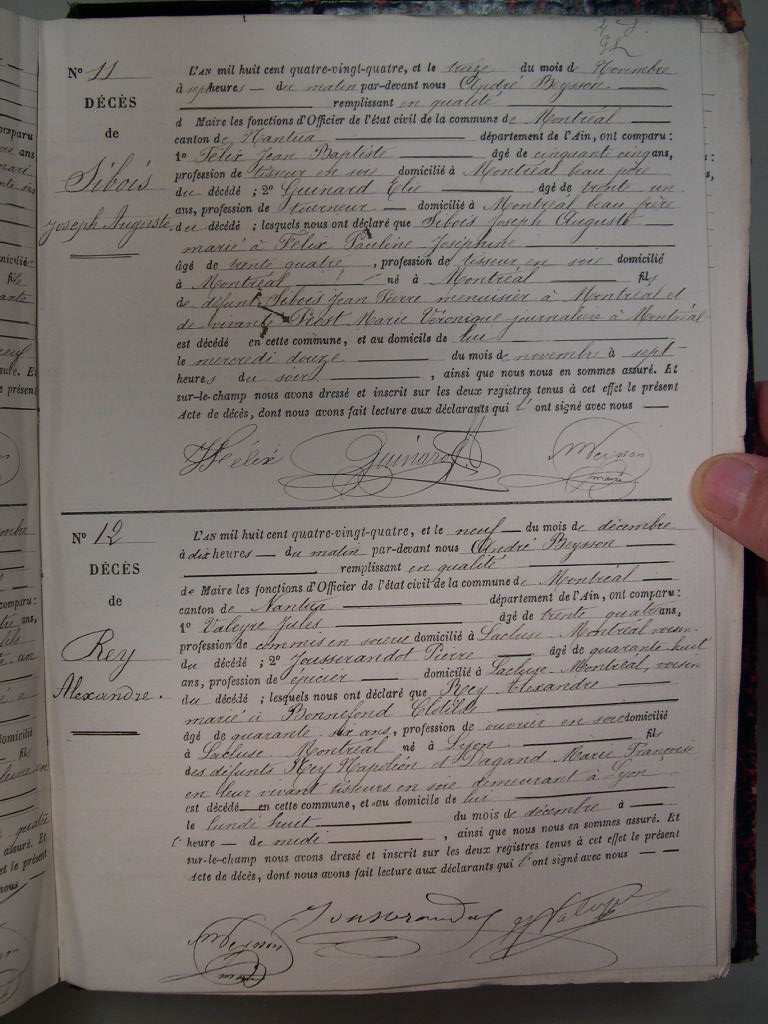 N° 11
DÉCÈS
de
Sibois
Joseph Auguste
L'AN mil huit cent quatre-vingt-quatre, et le treize du mois de Novembre
à sept heures — du matin par-devant nous André Beysson
remplissant en qualité
d Maire les fonctions d'Officier de l'état civil de la commune de Montréal
canton de Nantua département de l'Ain, ont comparu :
1° Félix Jean Baptiste âgé de cinquant cinq ans,
profession de tisseur en soie domicilié à Montréal beau père
du décédé ; 2° Guinard Elie âgé de trente un
ans, profession de tourneur domicilié à Montréal beau frère
du décédé ; lesquels nous ont déclaré que Sibois Joseph Auguste
marié à Félix Pauline Joséphine
âgé de trente quatre, profession de tisseur en soie domicilié
à Montréal né à Montréal fils
de défunt Sibois Jean Pierre menuisier à Montréal et
de vivante Prost Marie Véronique journalière à Montréal
est décédé en cette commune, et au domicile de lui
le mercredi douze du mois de novembre à sept
heures du soir, ainsi que nous nous en sommes assuré. Et
sur-le-champ nous avons dressé et inscrit sur les deux registres tenus à cet effet le présent
Acte de décès, dont nous avons fait lecture aux déclarants qui l'ont signé avec nous —
Félix Guinard
maire
N° 12
DÉCÈS
de
Rey
Alexandre.
L'AN mil huit cent quatre-vingt-quatre, et le neuf du mois de décembre
à dix heures — du matin par-devant nous André Beysson
remplissant en qualité
de Maire les fonctions d'Officier de l'état civil de la commune de Montréal
canton de Nantua département de l'Ain, ont comparu :
1° Valeyre Jules âgé de trente quatre ans,
profession de commis en soierie domicilié à Lacluse Montréal voisin
du décédé ; 2° Jousserandot Pierre âgé de quarante huit
ans, profession de épicier domicilié à Lacluse Montréal, voisin
du décédé ; lesquels nous ont déclaré que Rey Alexandre
marié à Bonnefond Clotilde
âgé de quarante six ans, profession de ouvrier en soie domicilié
à Lacluse Montréal né à Lyon fils
des défunts Rey Napoléon et Dagand Marie Françoise
en leur vivant tisseurs en soie demeurant à Lyon
est décédé en cette commune, et au domicile de lui
le lundi huit du mois de décembre à
l'heure — de midi, ainsi que nous nous en sommes assuré. Et
sur-le-champ nous avons dressé et inscrit sur les deux registres tenus à cet effet le présent
Acte de décès, dont nous avons fait lecture aux déclarants qui l'ont signé avec nous — —
Jousserandot
maire